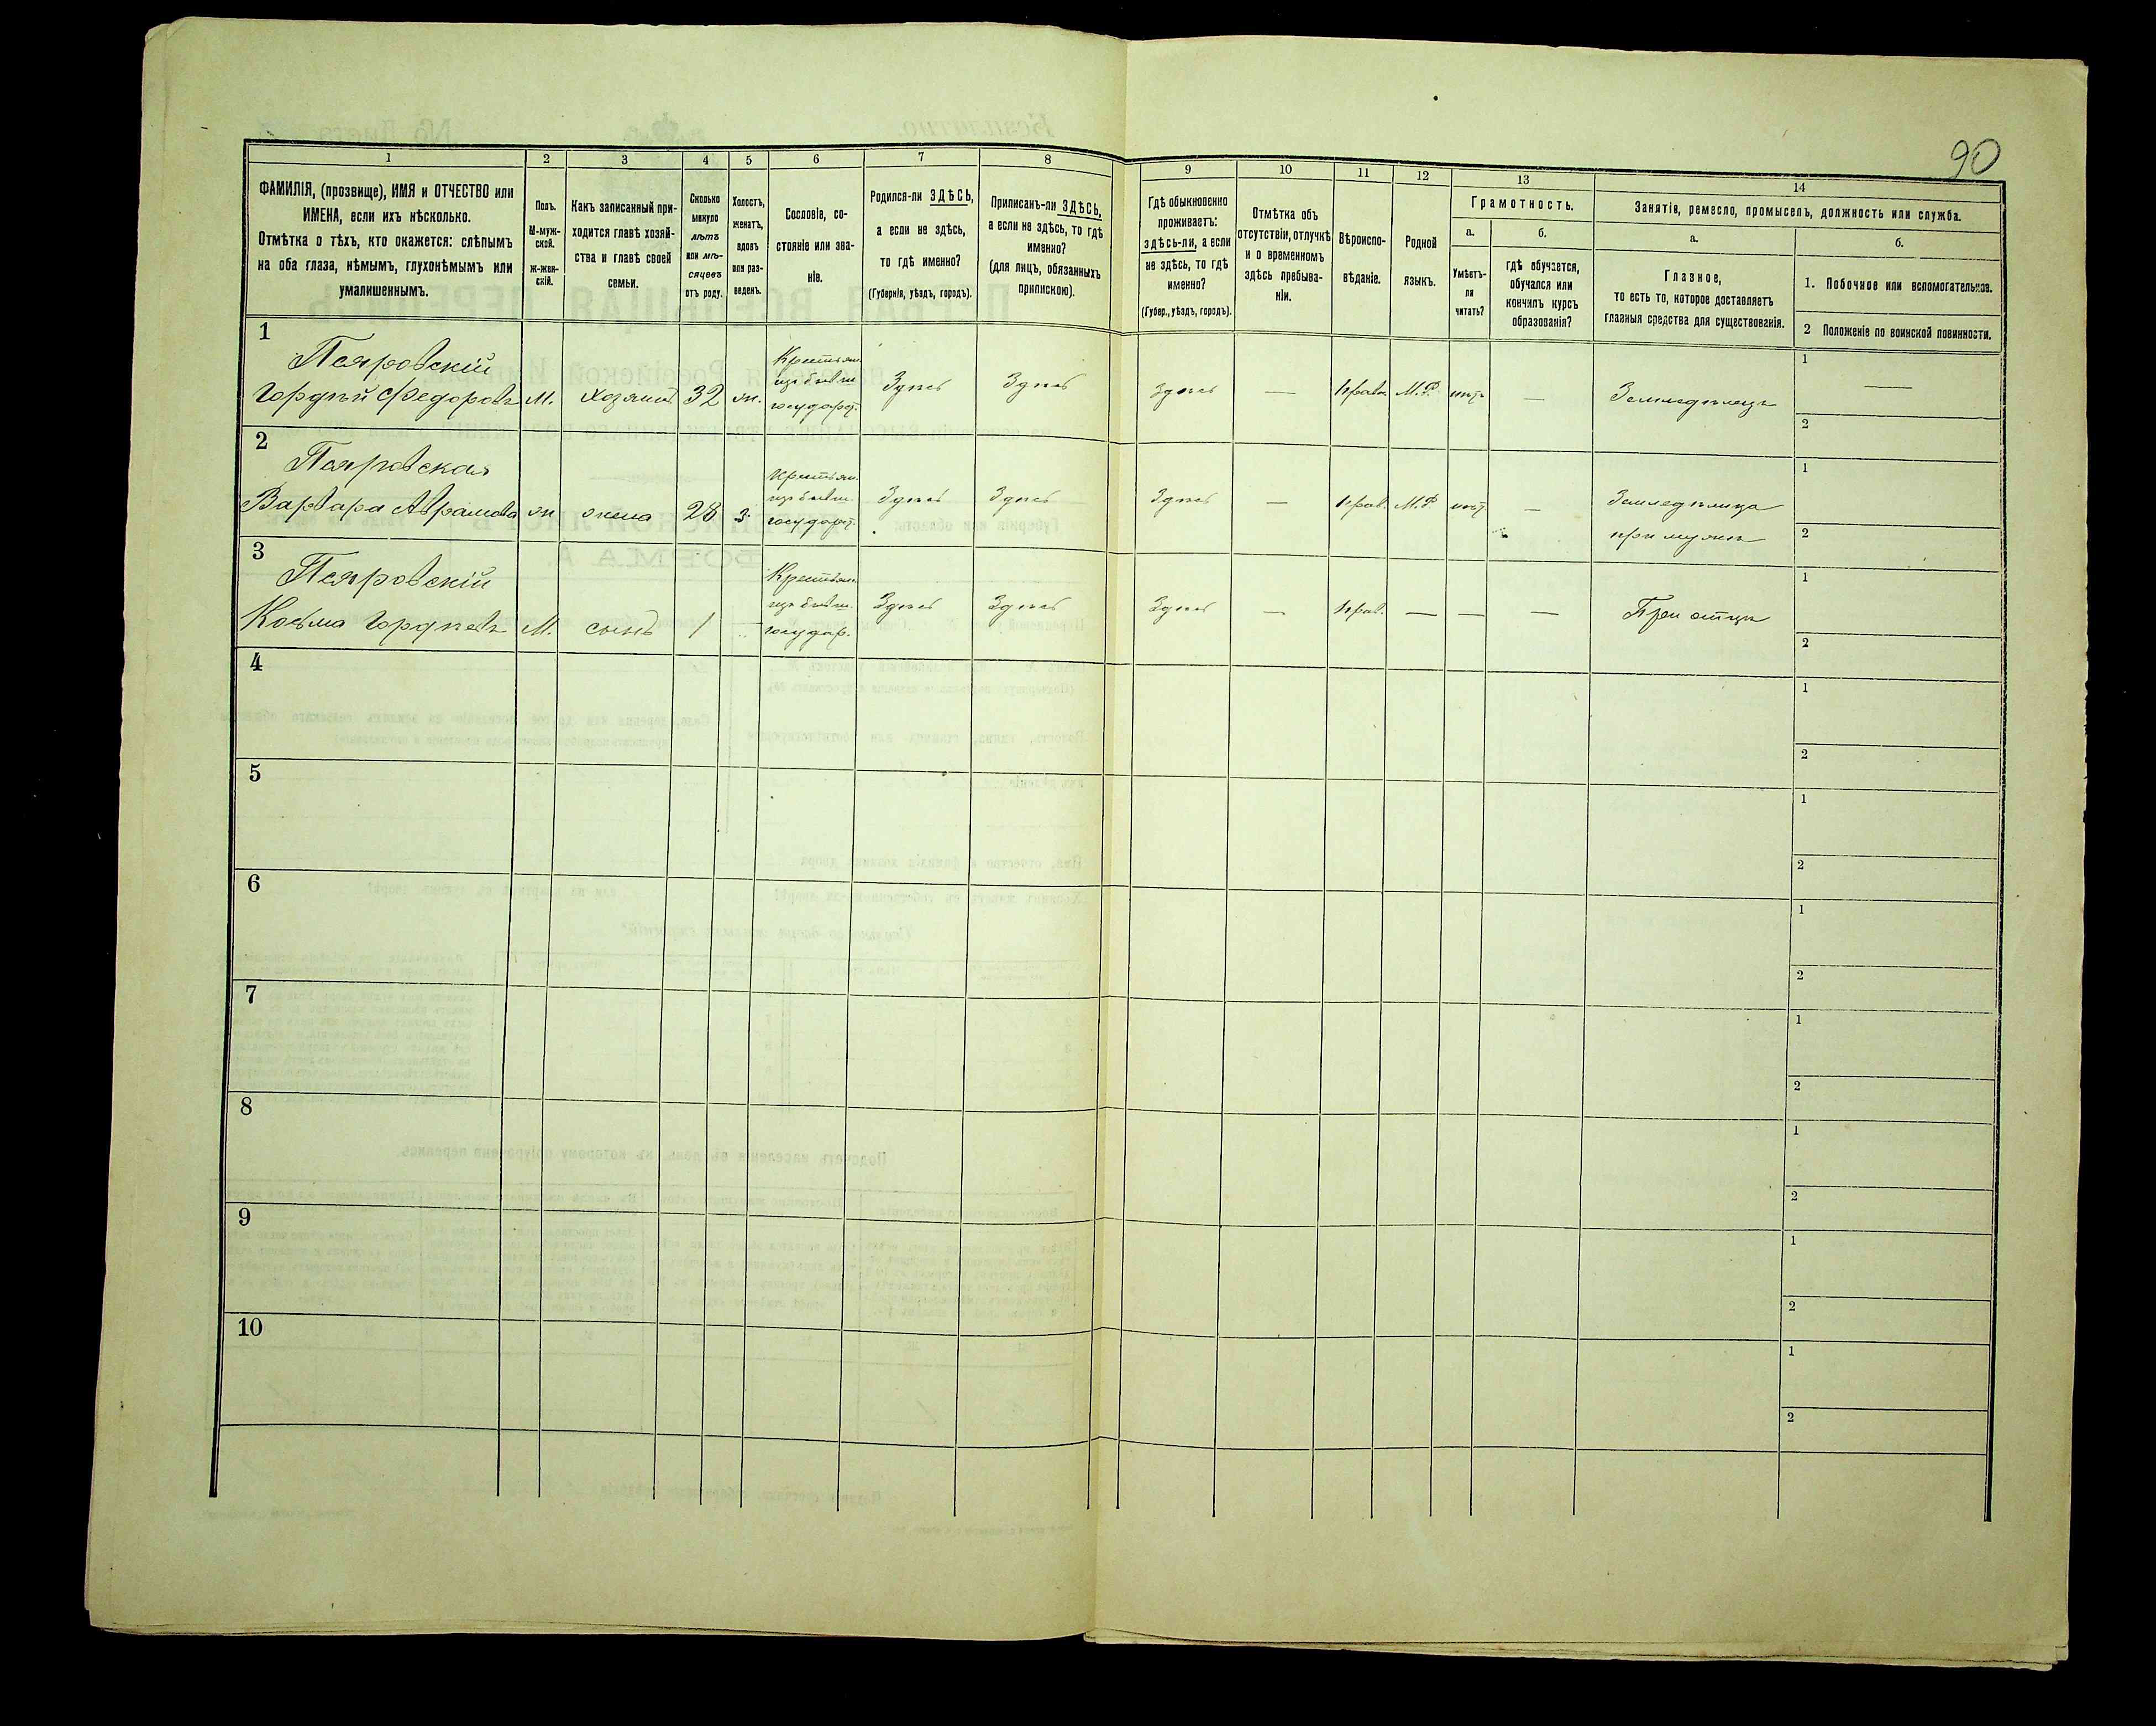 90
1 2 3 4 5 6 7 8 9 10 11 12 13 14
ФАМИЛІЯ, (прозвище), ИМЯ и ОТЧЕСТВО или
ИМЕНА, если ихъ нѣсколько.
Отмѣтка о тѣхъ, кто окажется: слѣпымъ
на оба глаза, нѣмымъ, глухонѣмымъ или
умалишеннымъ.
Полъ.
М-муж-
ской.
ж-жен-
скій.
Какъ записанный при-
ходится главѣ хозяй-
ства и главѣ своей
семьи.
Сколько
минуло
лѣтъ
или мѣ-
сяцевъ
отъ роду.
Холостъ,
женатъ,
вдовъ
или раз-
веденъ.
Сословіе, со-
стояніе или зва-
ніе.
Родился-ли ЗДѢСЬ,
а если не здѣсь,
то гдѣ именно?
(Губернія, уѣздъ, городъ).
Приписанъ-ли ЗДѢСЬ,
а если не здѣсь, то гдѣ
именно?
(для лицъ, обязанныхъ
припискою).
Гдѣ обыкновенно
проживаетъ:
здѣсь-ли, а если
не здѣсь, то гдѣ
именно?
(Губер., уѣздъ, городъ).
Отмѣтка объ
отсутствіи, отлучкѣ
и о временномъ
здѣсь пребыва-
ніи.
Вѣроиспо-
вѣданіе.
Родной
языкъ.
Грамотность.
а.
Умѣетъ-
ли
читать?
б.
гдѣ обучается,
обучался или
кончилъ курсъ
образованія?
Занятіе, ремесло, промыселъ, должность или служба.
а.
Главное,
то есть то, которое доставляетъ
главныя средства для существованія.
б.
1. Побочное или вспомогательное.
2 Положеніе по воинской повинности.
1
Пояровскій
Гордѣй Федоровъ М. хозяинъ 32 ж. Крестьян. изъ бывш. государ. Здѣсь Здѣсь здѣсь — прав. М.Р. нѣтъ — Земледѣлецъ
1 —
2
2
Пояровская
Варвара Аврамова ж жена 28 з. Крестьян. изъ бывш. государ. Здѣсь Здѣсь Здѣсь — прав. М.Р. нѣтъ — Земледѣлица
при мужѣ
1
2
3
Пояровскій
Косьма Гордѣевъ М. сынъ 1 — Крестьян. изъ бывш. государ. Здѣсь Здѣсь Здѣсь — прав. — — — При отцѣ
1
2
4
1
2
5
1
2
6
1
2
7
1
2
8
1
2
9
1
2
10
1
2